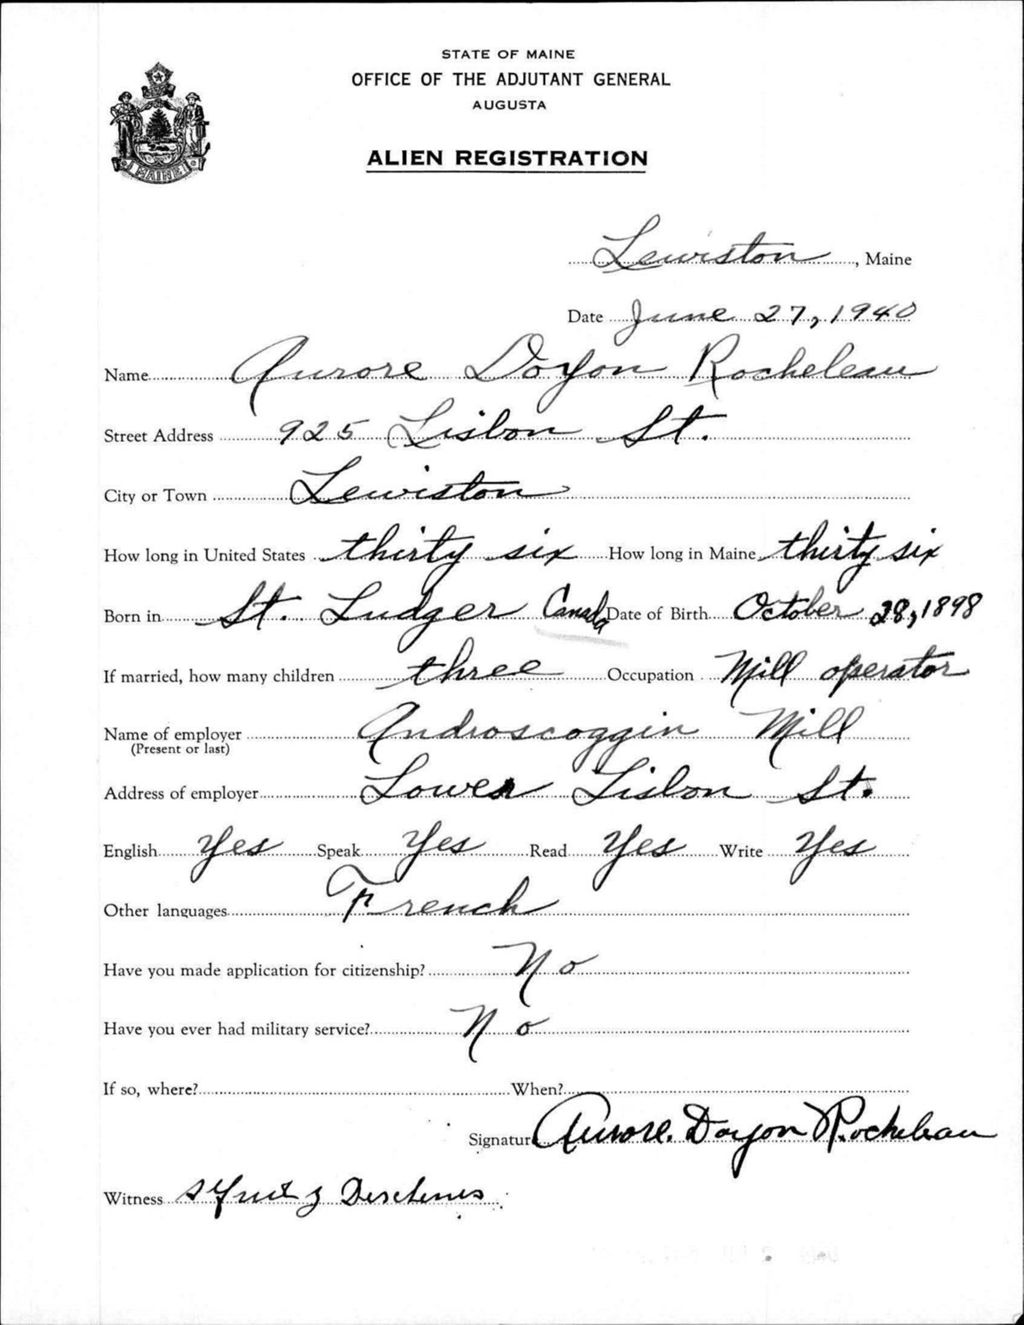 STATE OF MAINE
OFFICE OF THE ADJUTANT GENERAL
AUGUSTA
ALIEN REGISTRATION
MAINE
Lewiston, Maine
Date June 27, 1940
Name Aurore Doyon Rocheleau
Street Address 925 Lisbon St.
City or Town Lewiston
How long in United States thirty six How long in Maine thirty six
Born in St. Ludger Canada Date of Birth October 28, 1898
If married, how many children three Occupation Mill operator
Name of employer Androscoggin Mill
(Present or last)
Address of employer Lower Lisbon St.
English Yes Speak Yes Read Yes Write Yes
Other languages French
Have you made application for citizenship? No
Have you ever had military service? No
If so, where? When?
Signature Aurore Doyon Rocheleau
Witness Deschenes